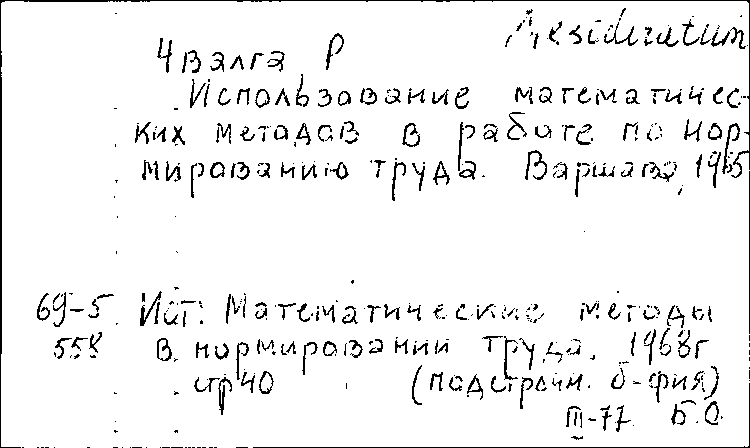 Desideratum
Чвалга Р
Использование математичес-
ких методов в работе по нор-
мированию труда. Варшава, 1965
69-5 Ист: Математические методы
558 в нормировании труда. 1968г
стр 40 (подстрочн. б-фия)
III-77 Б.О.